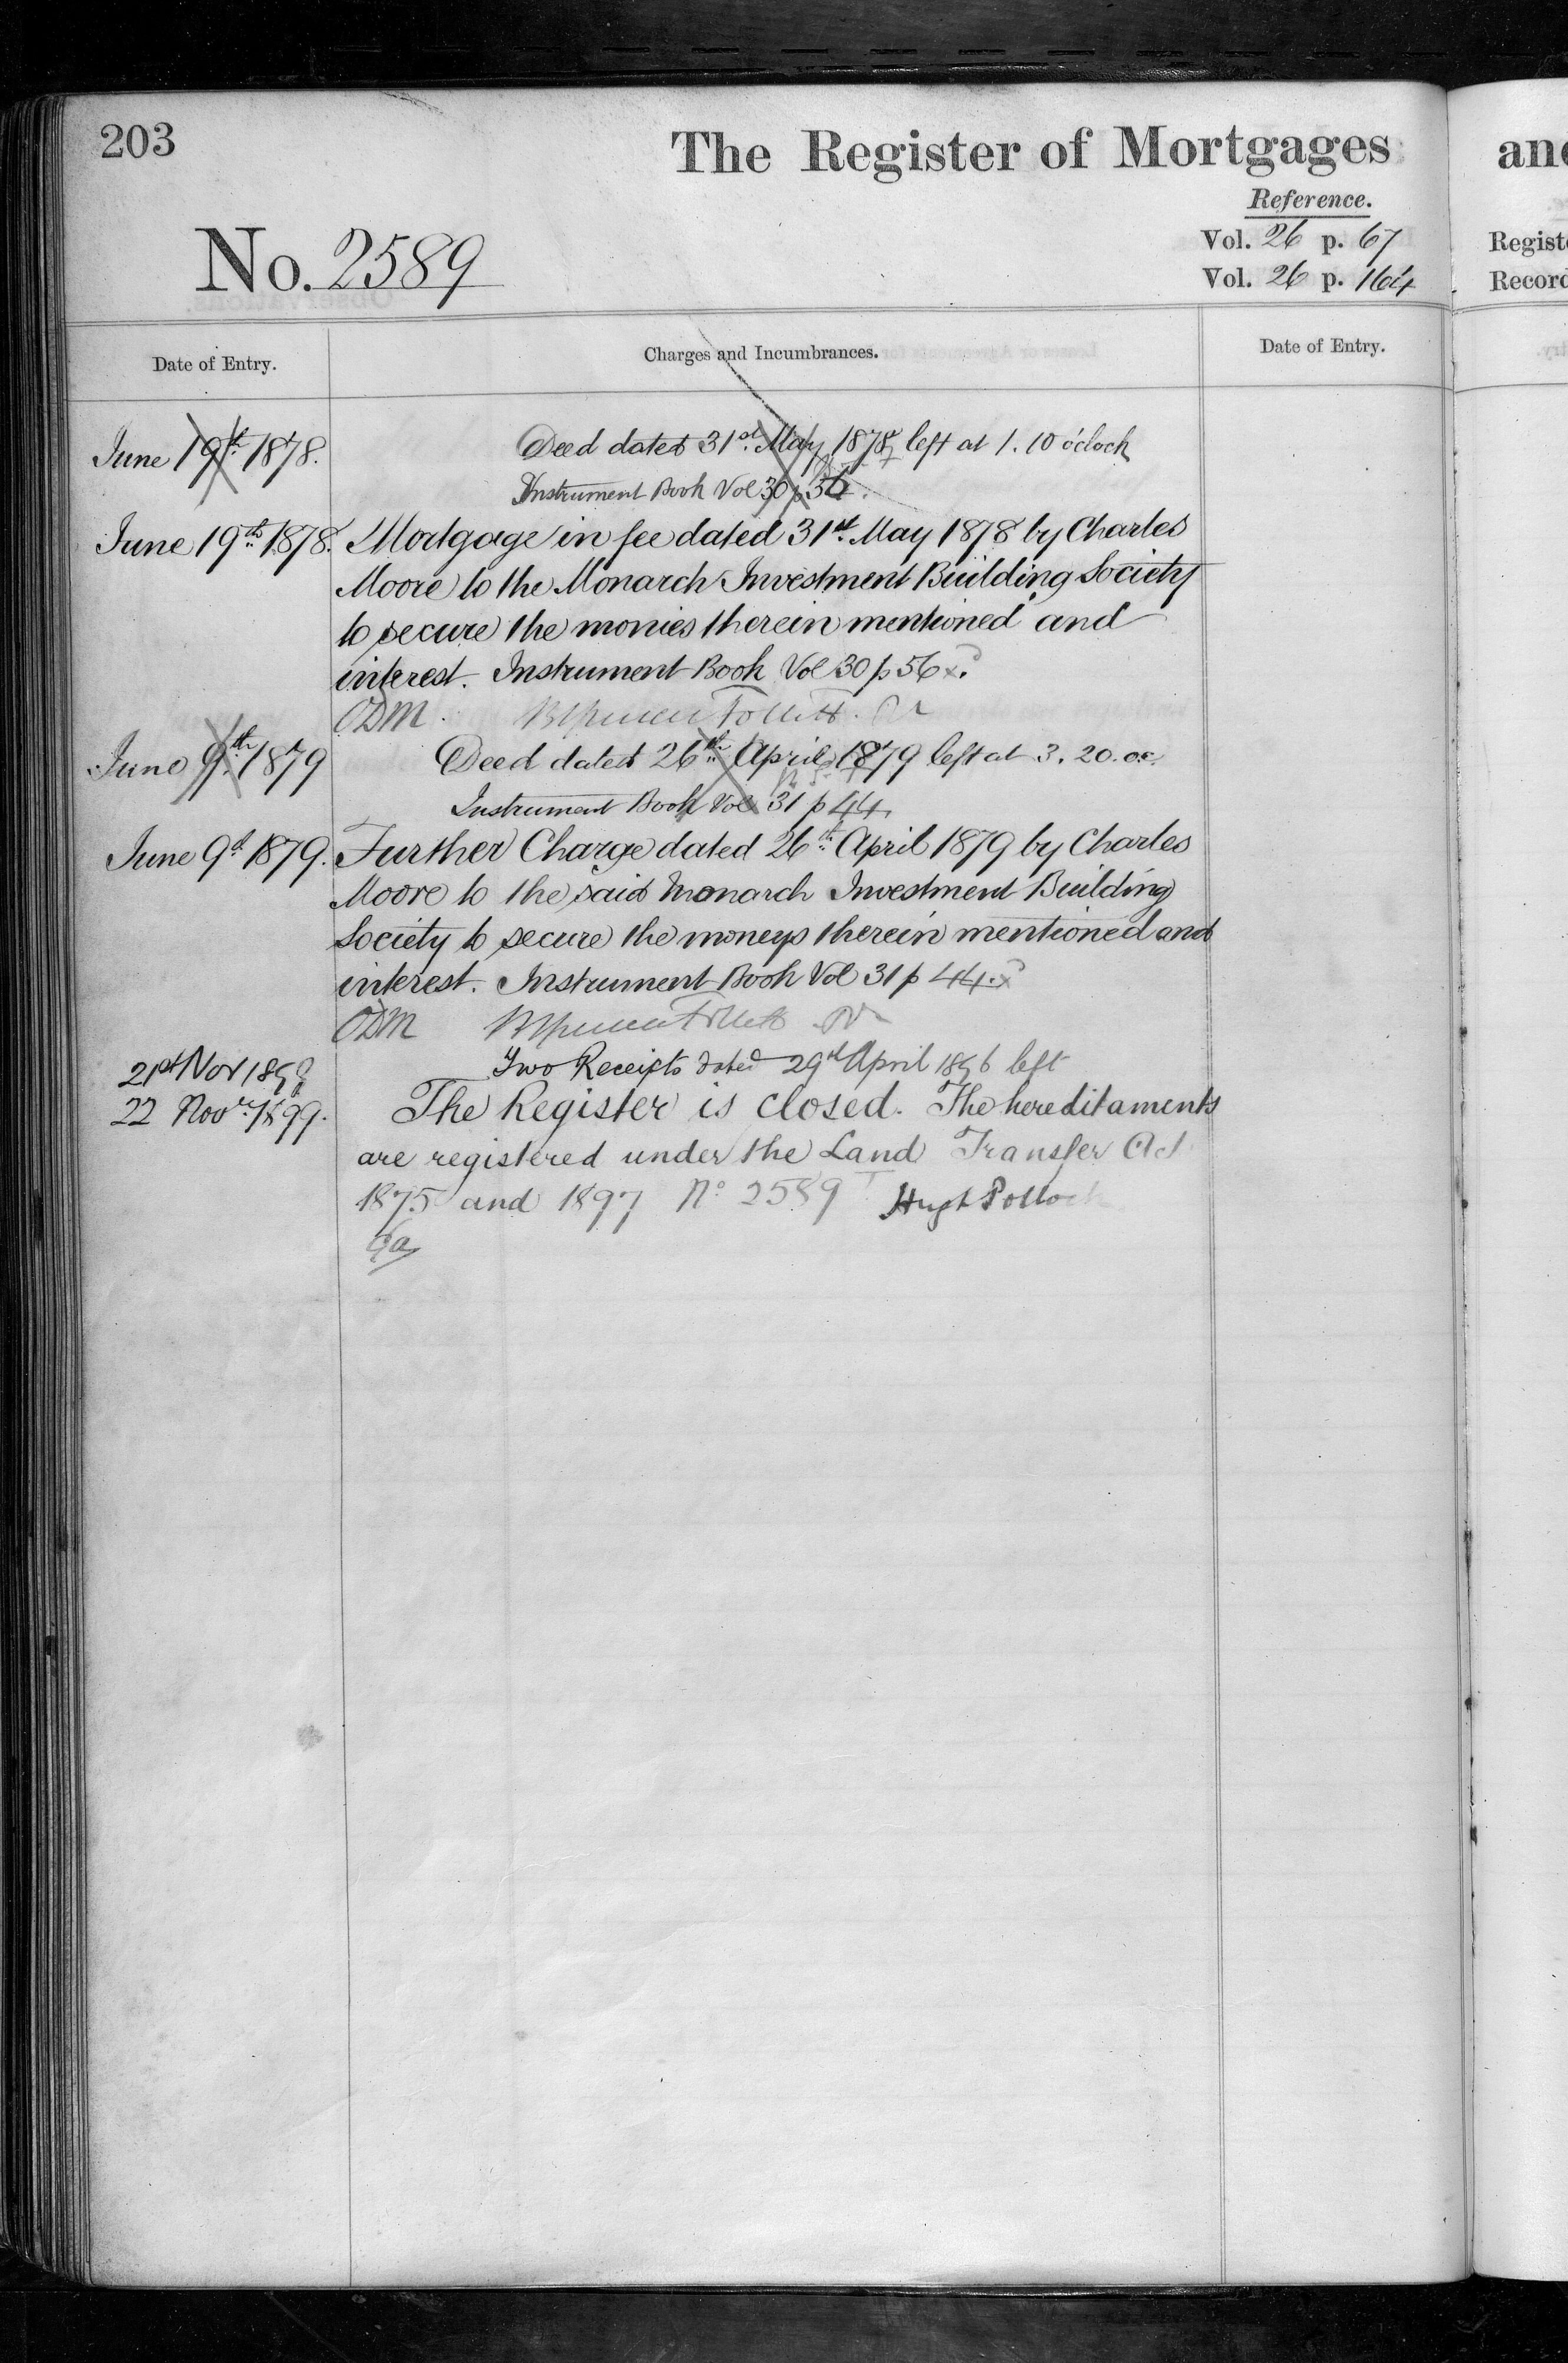 203
The Register of Mortgages
Reference.
Vol. 26 p. 67
Vol. 26 p. 164
No. 2589
Date of Entry.
Charges and Incumbrances.
Date of Entry.
June 19th 1878.
Deed dated 31st May 1878 left at 1.10 o'clock
Instrument Book Vol 30 p 56
June 19th 1878. Mortgage in fee dated 31st May 1878 by Charles
Moore to the Monarch Investment Building Society
to secure the monies therein mentioned and
interest. Instrument Book Vol 30 p 56.
ODM.
June 9th 1879
Deed dated 26th April 1879 left at 3.20. oc.
Instrument Book Vol 31 p 44.
June 9th 1879. Further Charge dated 26th April 1879 by Charles
Moore to the said Monarch Investment Building
Society to secure the moneys therein mentioned and
interest. Instrument Book Vol 31 p 44.
ODM
21st Nov
Two Receipts dated 29th April 1896 left
22 Novr. 1899. The Register is closed. The hereditaments
are registered under the Land Transfer Act
1875 and 1897 No 2589 Hugh Pollock
an
Regist
Record